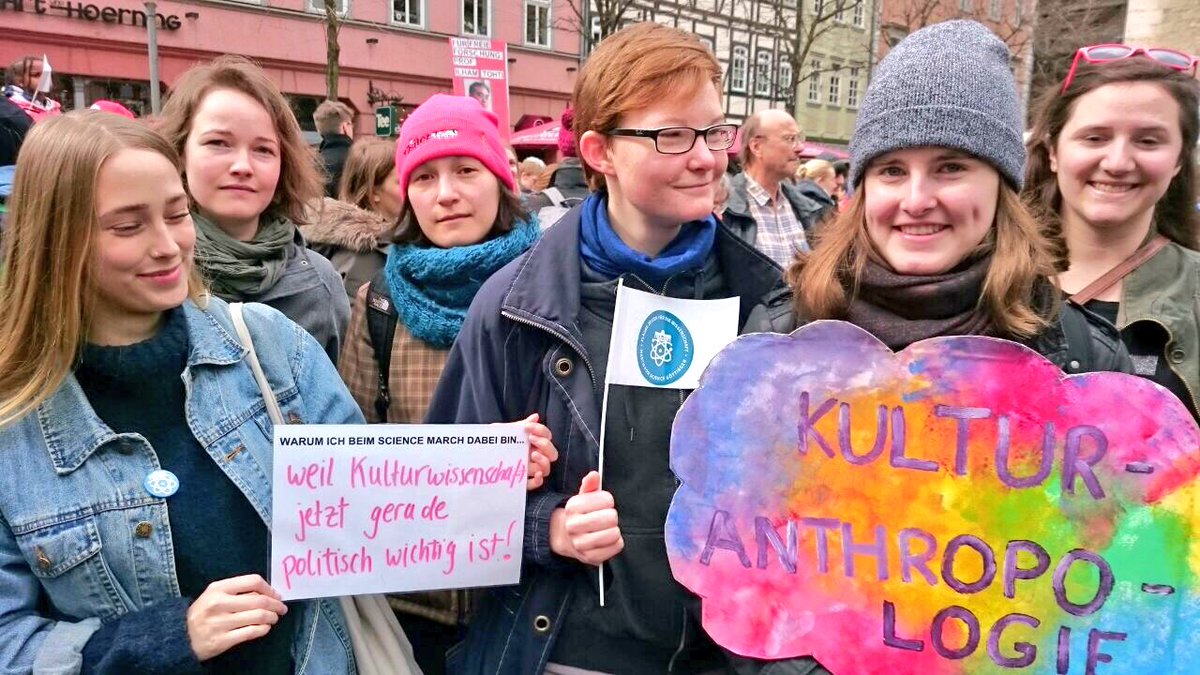 Hoerning
FÜR FREIE
FORSCHUNG
PROF
ILHAM TOHTI
Tee
WARUM ICH BEIM SCIENCE MARCH DABEI BIN...
weil Kulturwissenschaft
jetzt gerade
politisch wichtig ist!
KULTUR-
ANTHROPO-
LOGIE